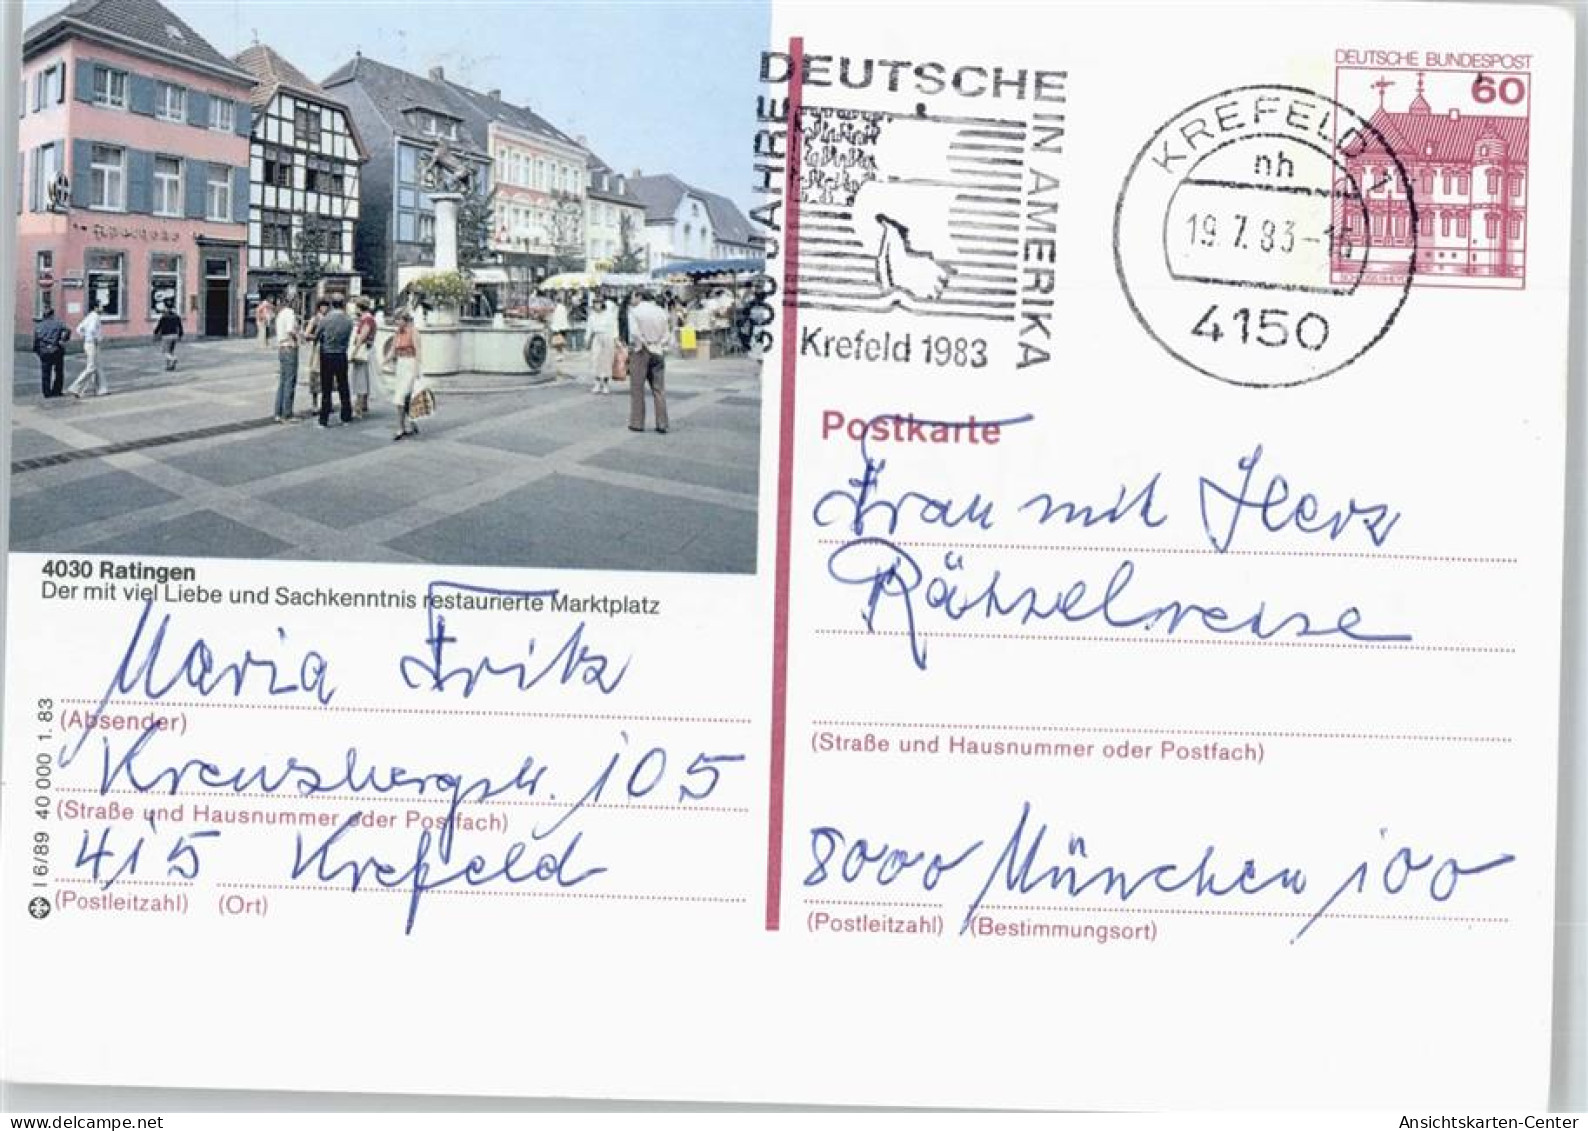 DEUTSCHE BUNDESPOST
60
300 JAHRE
DEUTSCHE
IN AMERIKA
Krefeld 1983
KREFELD 1
nh
19.7.83-16
4150
Apotheke
Postkarte
Frau mit Herz
Rätzelreise
(Straße und Hausnummer oder Postfach)
8000 München 100
(Postleitzahl) (Bestimmungsort)
4030 Ratingen
Der mit viel Liebe und Sachkenntnis restaurierte Marktplatz
Maria Fritz
(Absender)
Kreuzbergstr. 105
(Straße und Hausnummer oder Postfach)
415 Krefeld
(Postleitzahl) (Ort)
I 6/89 40 000 1.83
Ansichtskarten-Center